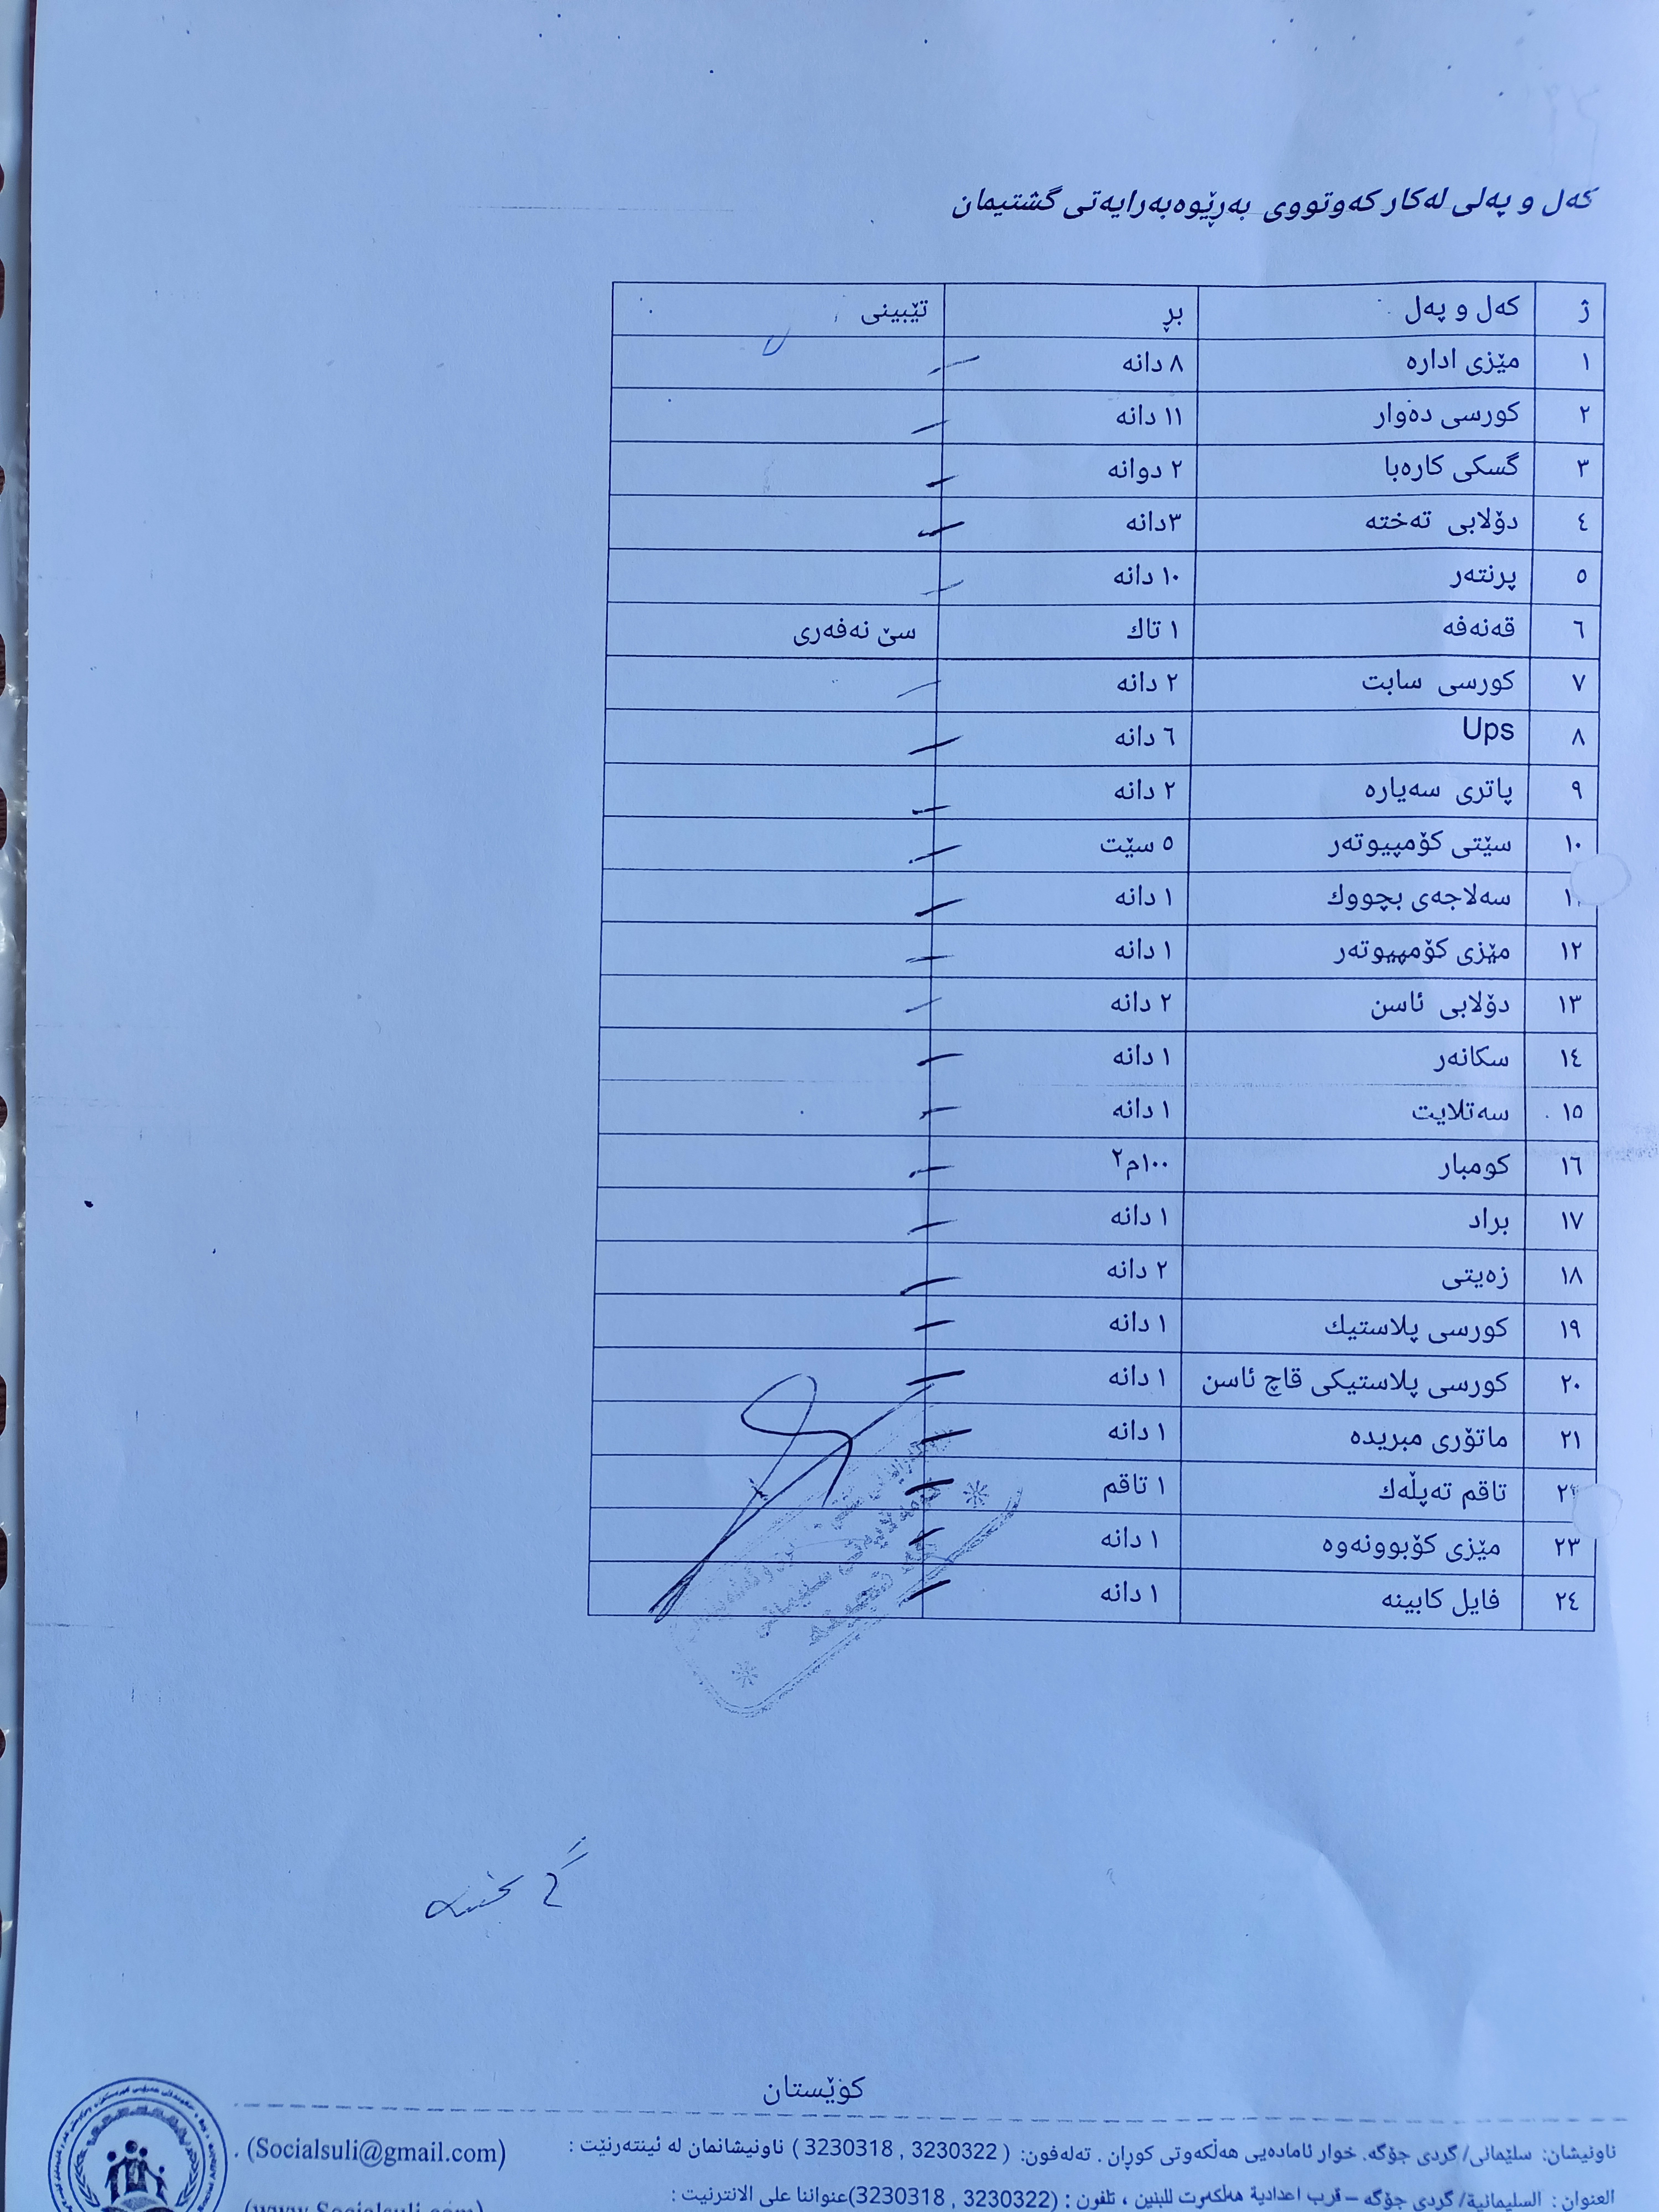 كەل و پەلی لەکار کەوتووی بەڕێوەبەرایەتی گشتیمان
ژ کەل و پەل بڕ تێبینی
١ مێزی ادارە ٨ دانە
٢ کورسی دەوار ١١ دانە
٣ گسکی کارەبا ٢ دوانە
٤ دۆلابی تەختە ٣دانە
٥ پرنتەر ١٠ دانە
٦ قەنەفە ١ تاك سێ نەفەری
٧ کورسی سابت ٢ دانە
٨ Ups ٦ دانە
٩ پاتری سەیارە ٢ دانە
١٠ سێتی کۆمپیوتەر ٥ سێت
١١ سەلاجەی بچووك ١ دانە
١٢ مێزی کۆمپیوتەر ١ دانە
١٣ دۆلابی ئاسن ٢ دانە
١٤ سکانەر ١ دانە
١٥ سەتلایت ١ دانە
١٦ کومبار ١٠٠م٢
١٧ براد ١ دانە
١٨ زەیتی ٢ دانە
١٩ کورسی پلاستيك ١ دانە
٢٠ کورسی پلاستیکی قاچ ئاسن ١ دانە
٢١ ماتۆری مبریدە ١ دانە
٢٢ تاقم تەپڵەك ١ تاقم
٢٣ مێزی کۆبوونەوە ١ دانە
٢٤ فایل کابینە ١ دانە
کوێستان
ناونیشان: سلێمانی/ گردی جۆگە. خوار ئامادەیی هەڵکەوتی کوڕان . تەلەفون: ( 3230322 , 3230318 ) ناونیشانمان لە ئینتەرنێت : (Socialsuli@gmail.com) .
العنوان : السليمانية/ گردی جۆگە – قرب اعدادية هەڵكەوت للبنين ، تلفون : (3230322 , 3230318)عنواننا على الانترنيت : (www.Socialsuli.com)